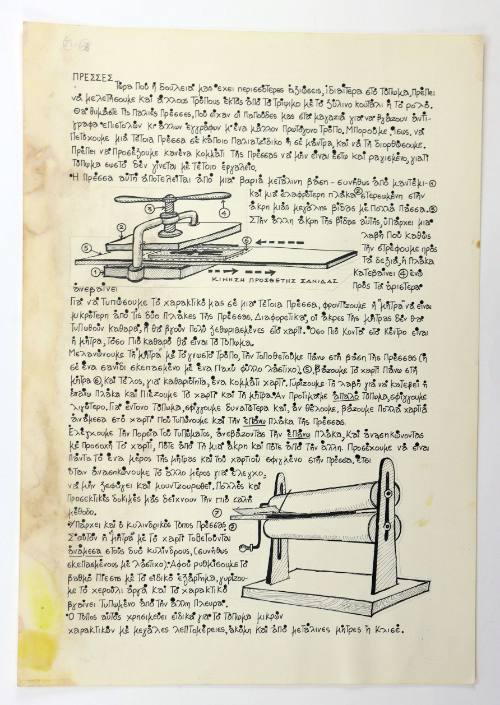 ΠΡΕΣΣΕΣ
Τώρα που ή δουλειά μας έχει περισσότερες αξιώσεις, ιδιαίτερα στο τύπωμα, πρέπει
να μελετήσουμε και άλλους τρόπους εκτός από το τρίψιμο με το ξύλινο κουτάλι ή το ρολό.
Θα θυμάστε τις παλιές πρέσσες, που είχαν οι παππούδες μας στα μαγαζιά για να βγάζουν αντί-
γραφα επιστολών κι άλλων εγγράφων μ' ένα μάλλον πρωτόγονο τρόπο. Μπορούμε, ίσως, να
πετύχουμε μιά τέτοια πρέσσα σε κάποιο παλιατζίδικο ή σε μάντρα, και να τη διορθώσουμε.
Πρέπει να προσέξουμε κανένα κομμάτι της πρέσσας να μην είναι σκιστό και ραγισμένο, γιατί
τύπωμα σωστό δεν γίνεται με τέτοιο εργαλείο.
Ή πρέσσα αυτή αποτελείται από μια βαριά μετάλινη βάση - συνήθως από μαντέμι - ①
και μια ελαφρότερη πλάκα ② στερεωμένη στην
άκρη μιάς μεγάλης βίδας με πολλά πάσσα. ③
Στην άλλη άκρη της βίδας αυτής, υπάρχει μια
λαβή που καθώς
την στρέφουμε προς
τα δεξιά, ή πλάκα
κατεβαίνει ④ ενώ
προς τα αριστερά
ανεβαίνει
③
④
②
⑥
⑤
①
ΚΙΝΗΣΗ ΠΡΟΣΘΕΤΗΣ ΣΑΝΙΔΑΣ
Για να τυπώσουμε το χαρακτικό μας σε μια τέτοια πρέσσα, φροντίζουμε ή μήτρα να είναι
μικρότερη από τις δυο πλάκες της πρέσσας. Διαφορετικά, οι άκρες της μήτρας δεν θα
τυπωθούν καθαρά, ή θα βγουν πολύ ξεθωριασμένες στο χαρτί. Όσο πιο κοντά στο κέντρο είναι
ή μήτρα, τόσο πιο καθαρό θα είναι το τύπωμα.
Μελανώνουμε τη μήτρα με το γνωστό τρόπο, την τοποθετούμε πάνω στη βάση της πρέσσας (ή
σε ένα σανίδι σκεπασμένο με ένα παχύ φύλλο λάστιχο) ⑤, βάζουμε το χαρτί πάνω στη
μήτρα ⑥, και τέλος, για καθαριότητα, ένα κομμάτι χαρτί. Γυρίζουμε τη λαβή για να κατεβεί ή
επάνω πλάκα και πιέζουμε το χαρτί και τη μήτρα. Αν προτιμάμε απαλό τύπωμα, σφίγγουμε
λιγότερο. Για έντονο τύπωμα, σφίγγουμε δυνατότερα και, αν θέλουμε, βάζουμε πολλά χαρτιά
ανάμεσα στο χαρτί που τυπώνουμε και την επάνω πλάκα της πρέσσας.
Ελέγχουμε την πορεία του τυπώματος, ανεβάζοντας την επάνω πλάκα, και ανασηκώνοντας
με προσοχή το χαρτί, πότε από τη μια άκρη πότε από την άλλη. Προσέχουμε να είναι
πάντα το ένα μέρος της μήτρας και του χαρτιού σφιγμένο στην πρέσσα, έτσι
όταν ανασηκώνουμε το άλλο μέρος για έλεγχο,
να μην ξεφύγει και μουντζουρωθεί. Πολλές και
προσεκτικές δοκιμές μας δείχνουν την πιο καλή
μέθοδο.
Υπάρχει και ο κυλινδρικός τύπος πρέσσας ⑦
Σ' αυτόν ή μήτρα με το χαρτί τοθετούνται
ανάμεσα στους δυο κυλίνδρους, (συνήθως
σκεπασμένους με λάστιχο). Αφού ρυθμίσουμε το
βαθμό πίεσης με το ειδικό εξάρτημα, γυρίζου-
με το χερούλι αργά και το χαρακτικό
βγαίνει τυπωμένο από την άλλη πλευρά.
Ο τύπος αυτός χρησιμεύει ειδικά για το τύπωμα μικρών
χαρακτικών με μεγάλες λεπτομέρειες, ακόμη και από μετάλινες μήτρες ή κλισέ.
⑦